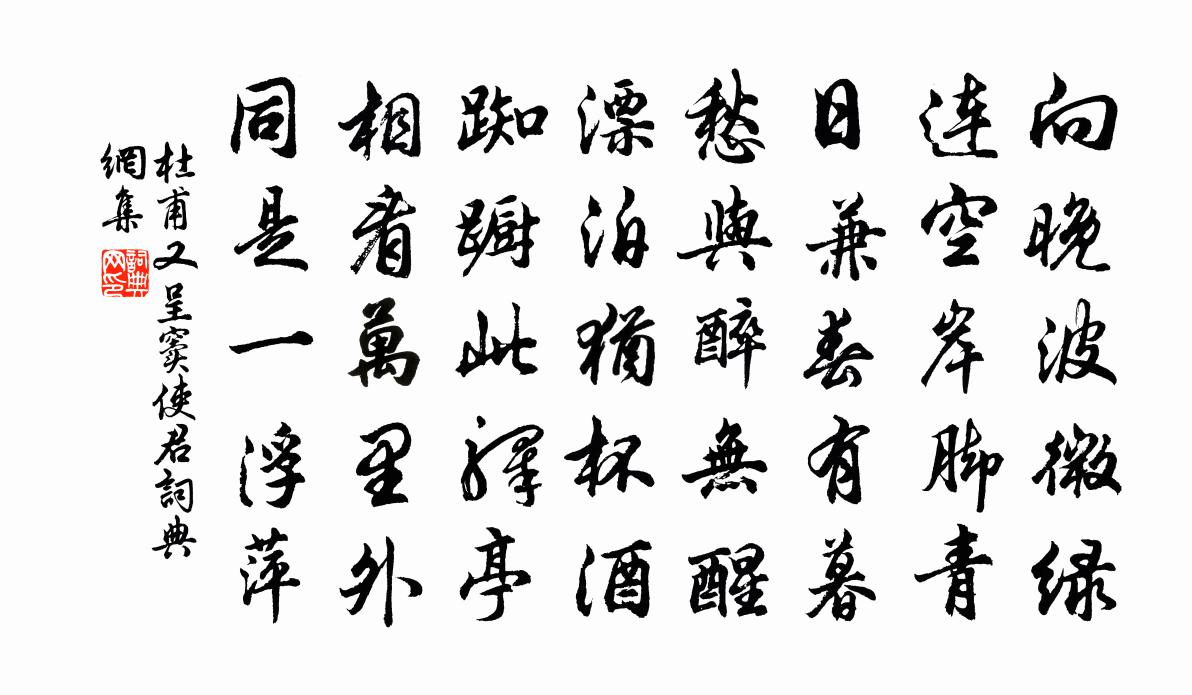 向晚波微绿
連空岸脚青
日兼春有暮
愁與醉無醒
漂泊猶杯酒
踟躕此驛亭
相看萬里外
同是一浮萍
杜甫又呈竇使君詞典
網集
詞典
网印